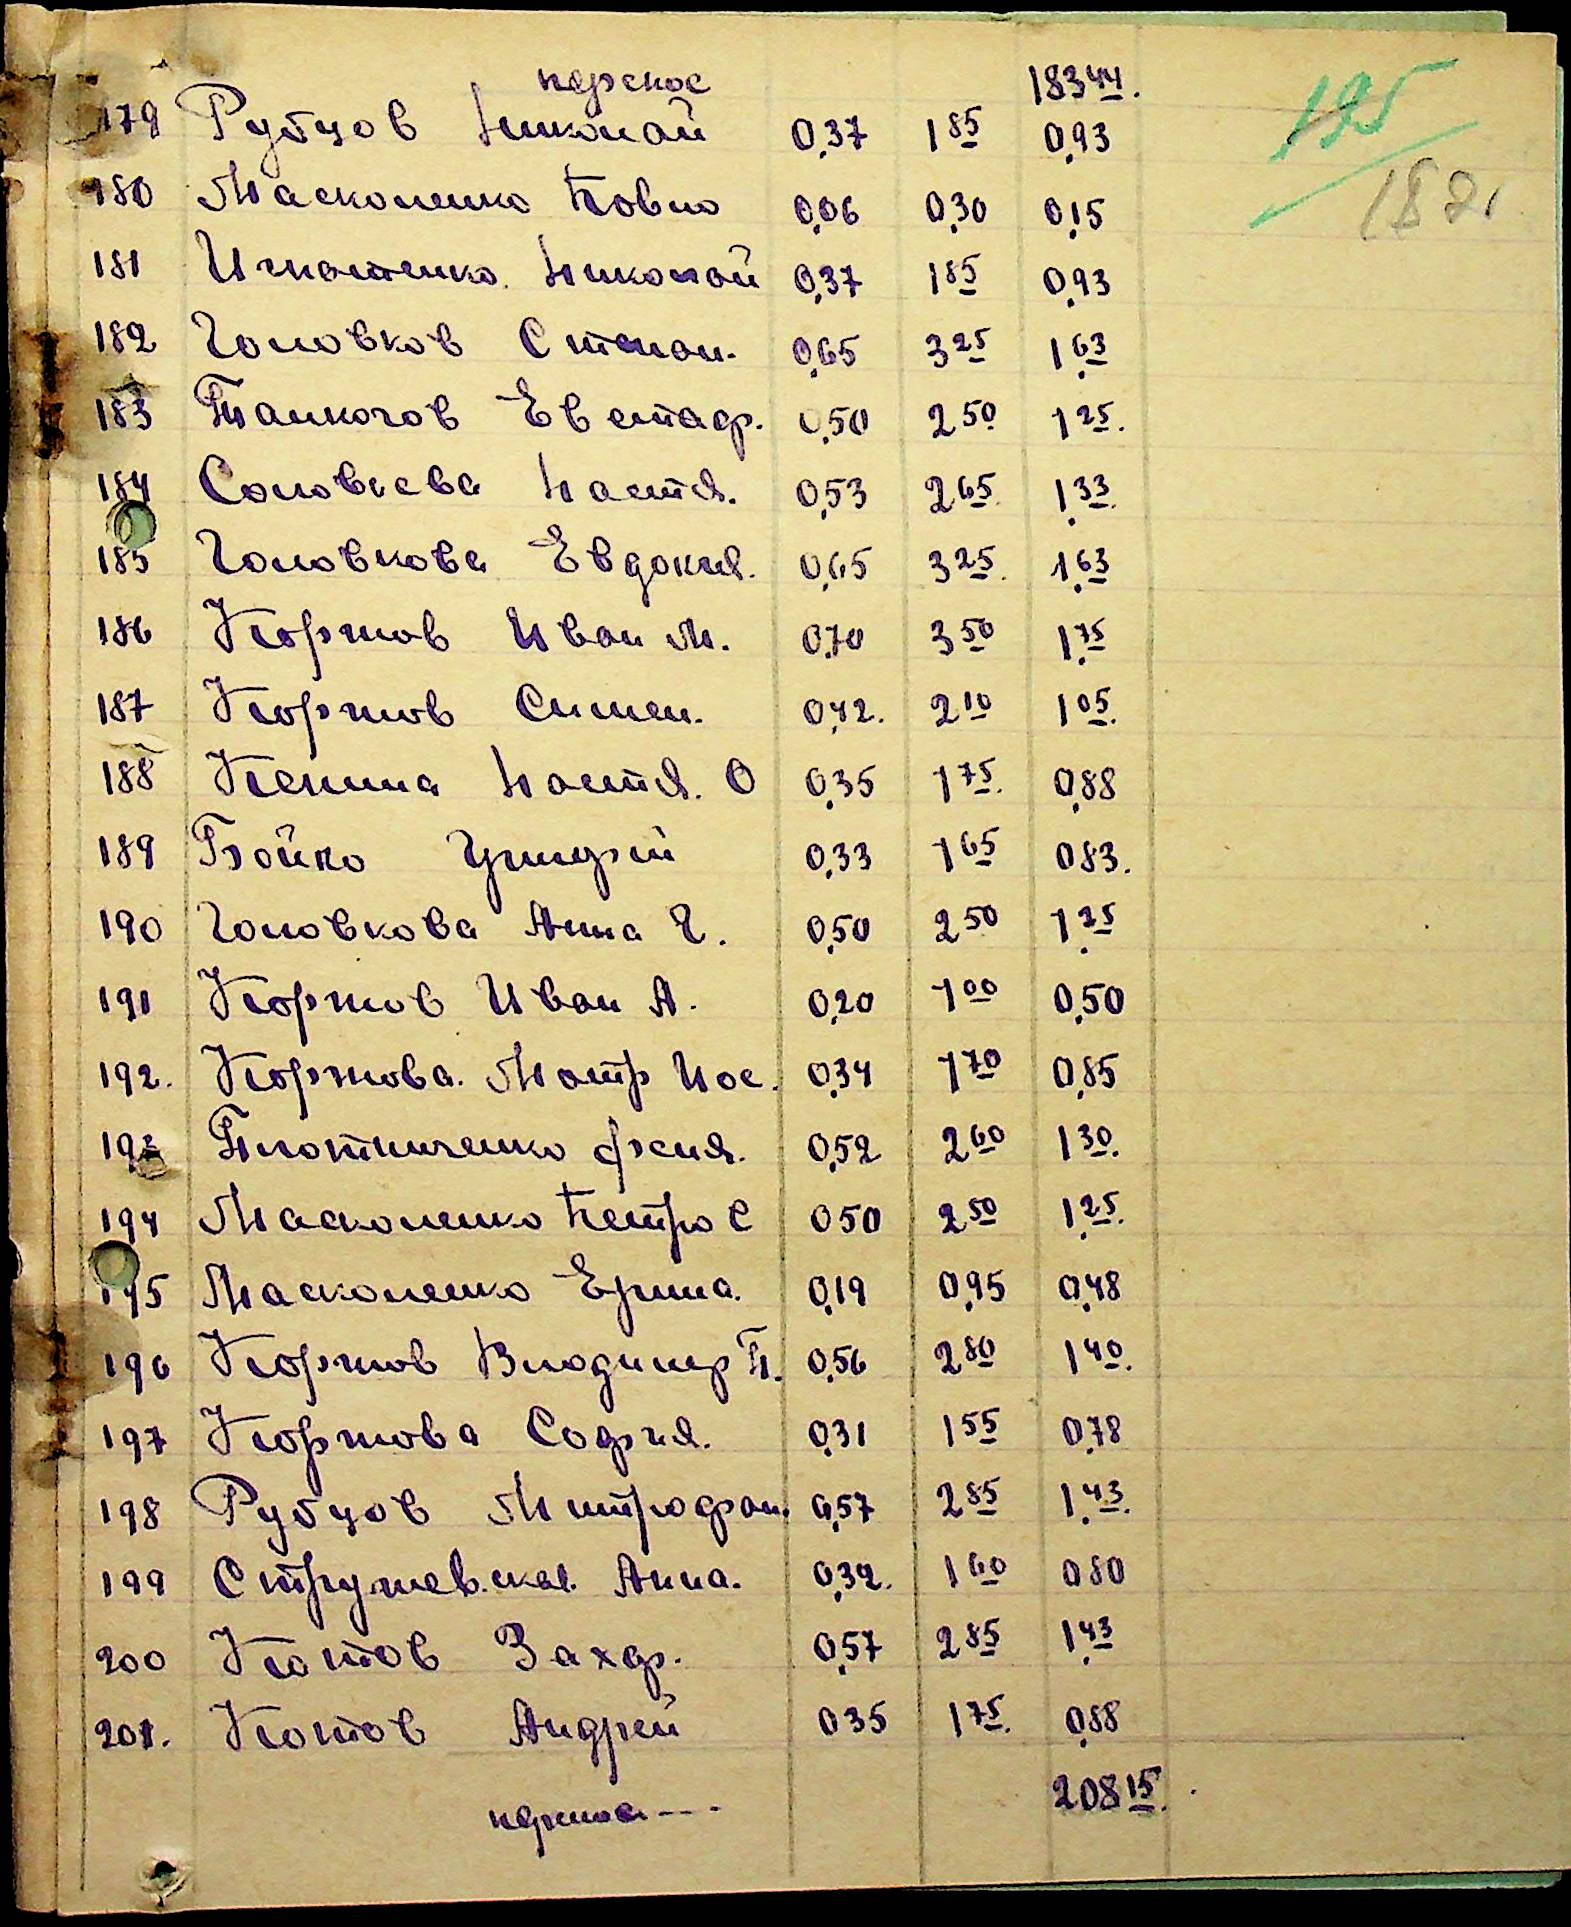 перенос 183 44.
195
182
179 Рубцов Николай 0,37 1 85 0,93
180 Масколенко Павло 0,06 0,30 0,15
181 Игнатенко Николай 0,37 1 85 0,93
182 Головков Степан. 0,65 3 25 1 63
183 Панкогов Евстаф. 0,50 2 50 1 25.
184 Соловьева Настя. 0,53 2 65 1 33
185 Головкова Евдокия. 0,65 3 25 1 63
186 Коржов Иван М. 0,70 3 50 1 75
187 Коржов Симен. 0,42. 2 10 1 05.
188 Кенина Настя. О 0,35 1 75. 0,88
189 Бойко 0,33 1 65 0 83.
190 Головкова Анна Г. 0,50 2 50 1 25
191 Коржов Иван А. 0,20 1 00 0,50
192. Коржова Мотр Иос. 0,34 1 70 0,85
193 Плотниченко Феня. 0,52 2 60 1 30.
194 Масколенко Петро С 0 50 2 50 1 25.
195 Масколенко Ерина. 0,19 0,95 0,48
196 Коржов Владимер П. 0,56 2 80 1 40.
197 Коржова София. 0,31 1 55 0,78
198 Рубцов Митрофан. 0,57 2 85 1 43.
199 Стружевская Анна. 0,32. 1 60 0 80
200 Котов Захар. 0,57 2 85 1 43
201. Котов Андрей 0 35 1 75. 0,88
перенос --- 208 15.